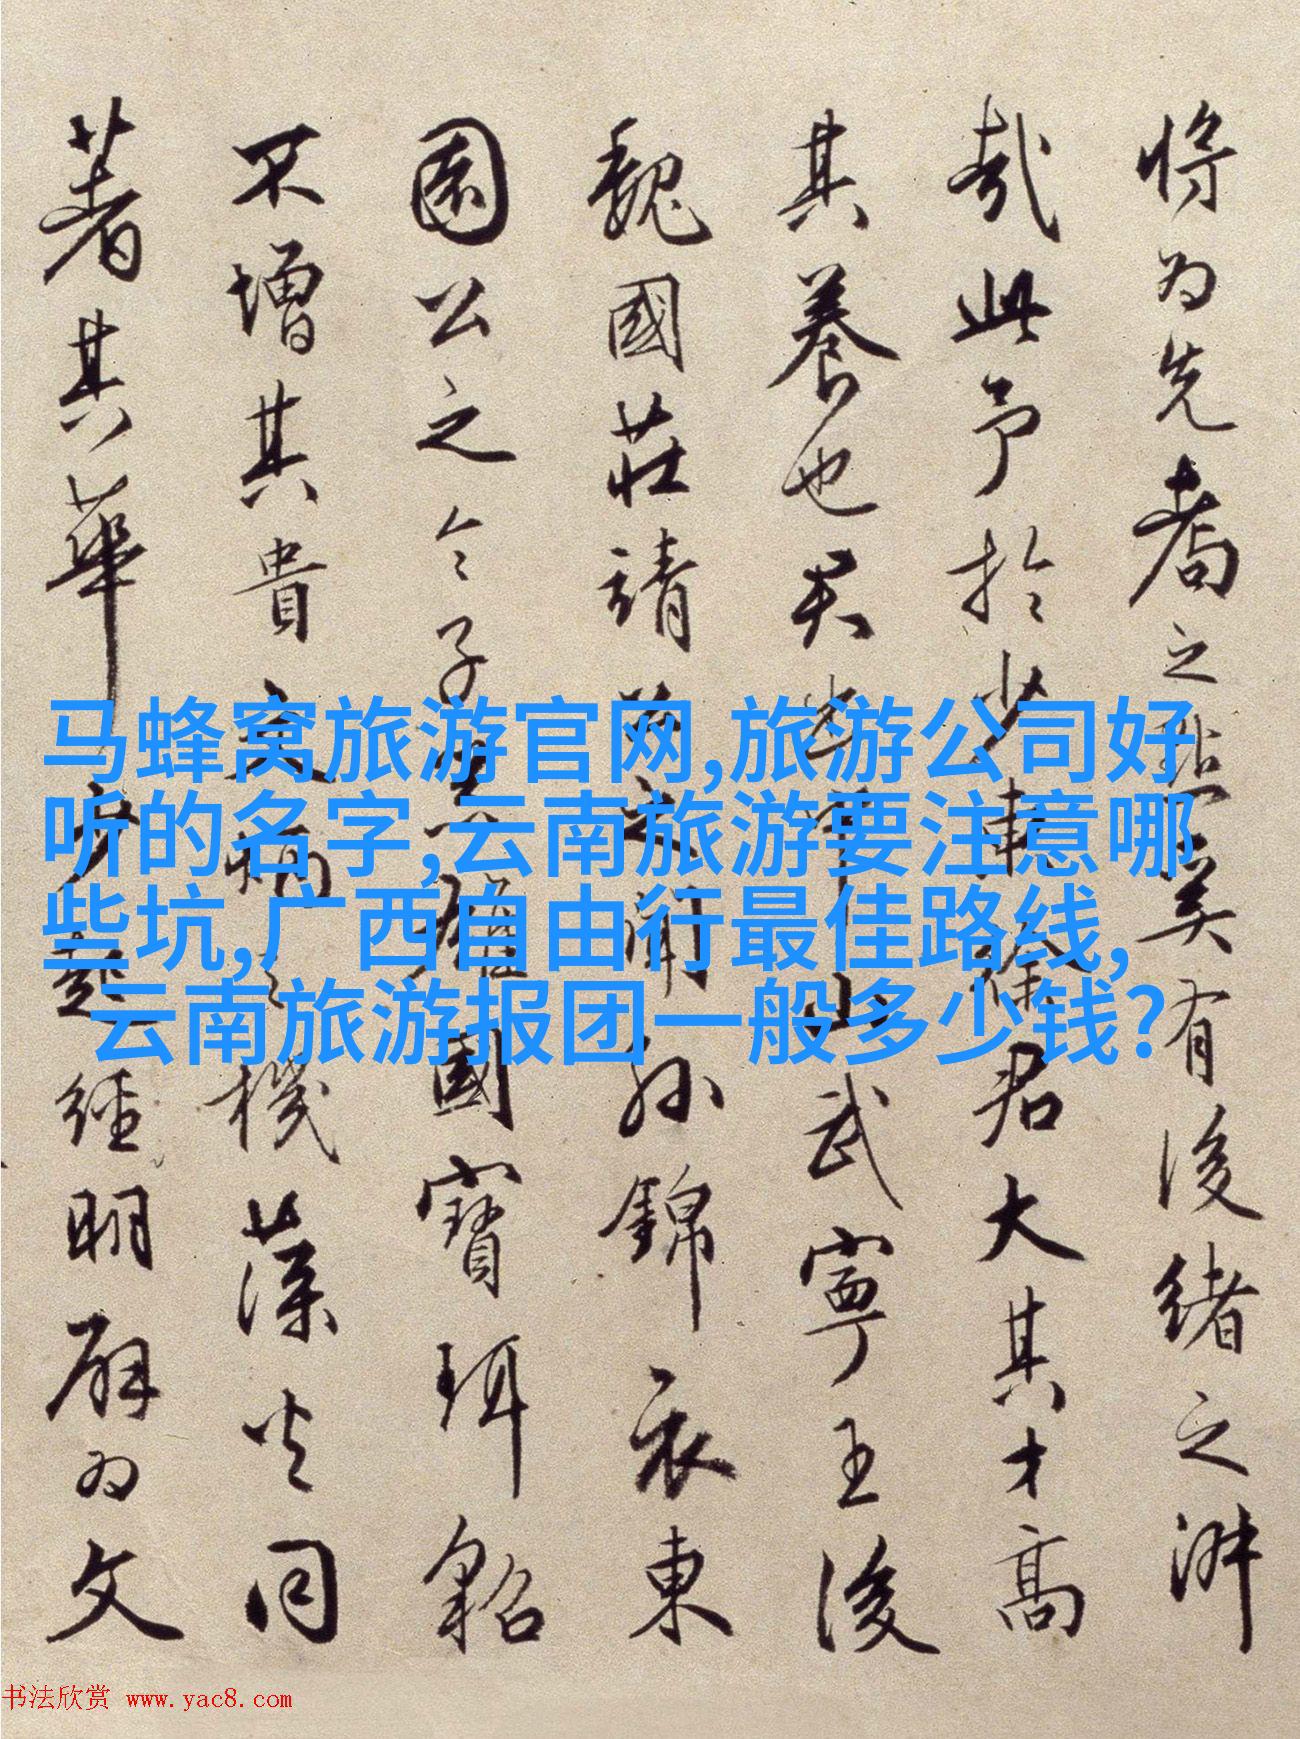 將為先之矣有後緒之
哉此予於少軒徐君大其才高
其養也君出中山武寧王後
魏國莊靖之聞孫錦衣東
園公之令子國寶珥貂
不增其貴文機藻火同
著其華經明辟為文
马蜂窝旅游官网,旅游公司好
听的名字,云南旅游要注意哪
些坑,广西自由行最佳路线,
云南旅游报团一般多少钱?
书法欣赏 www.yac8.com